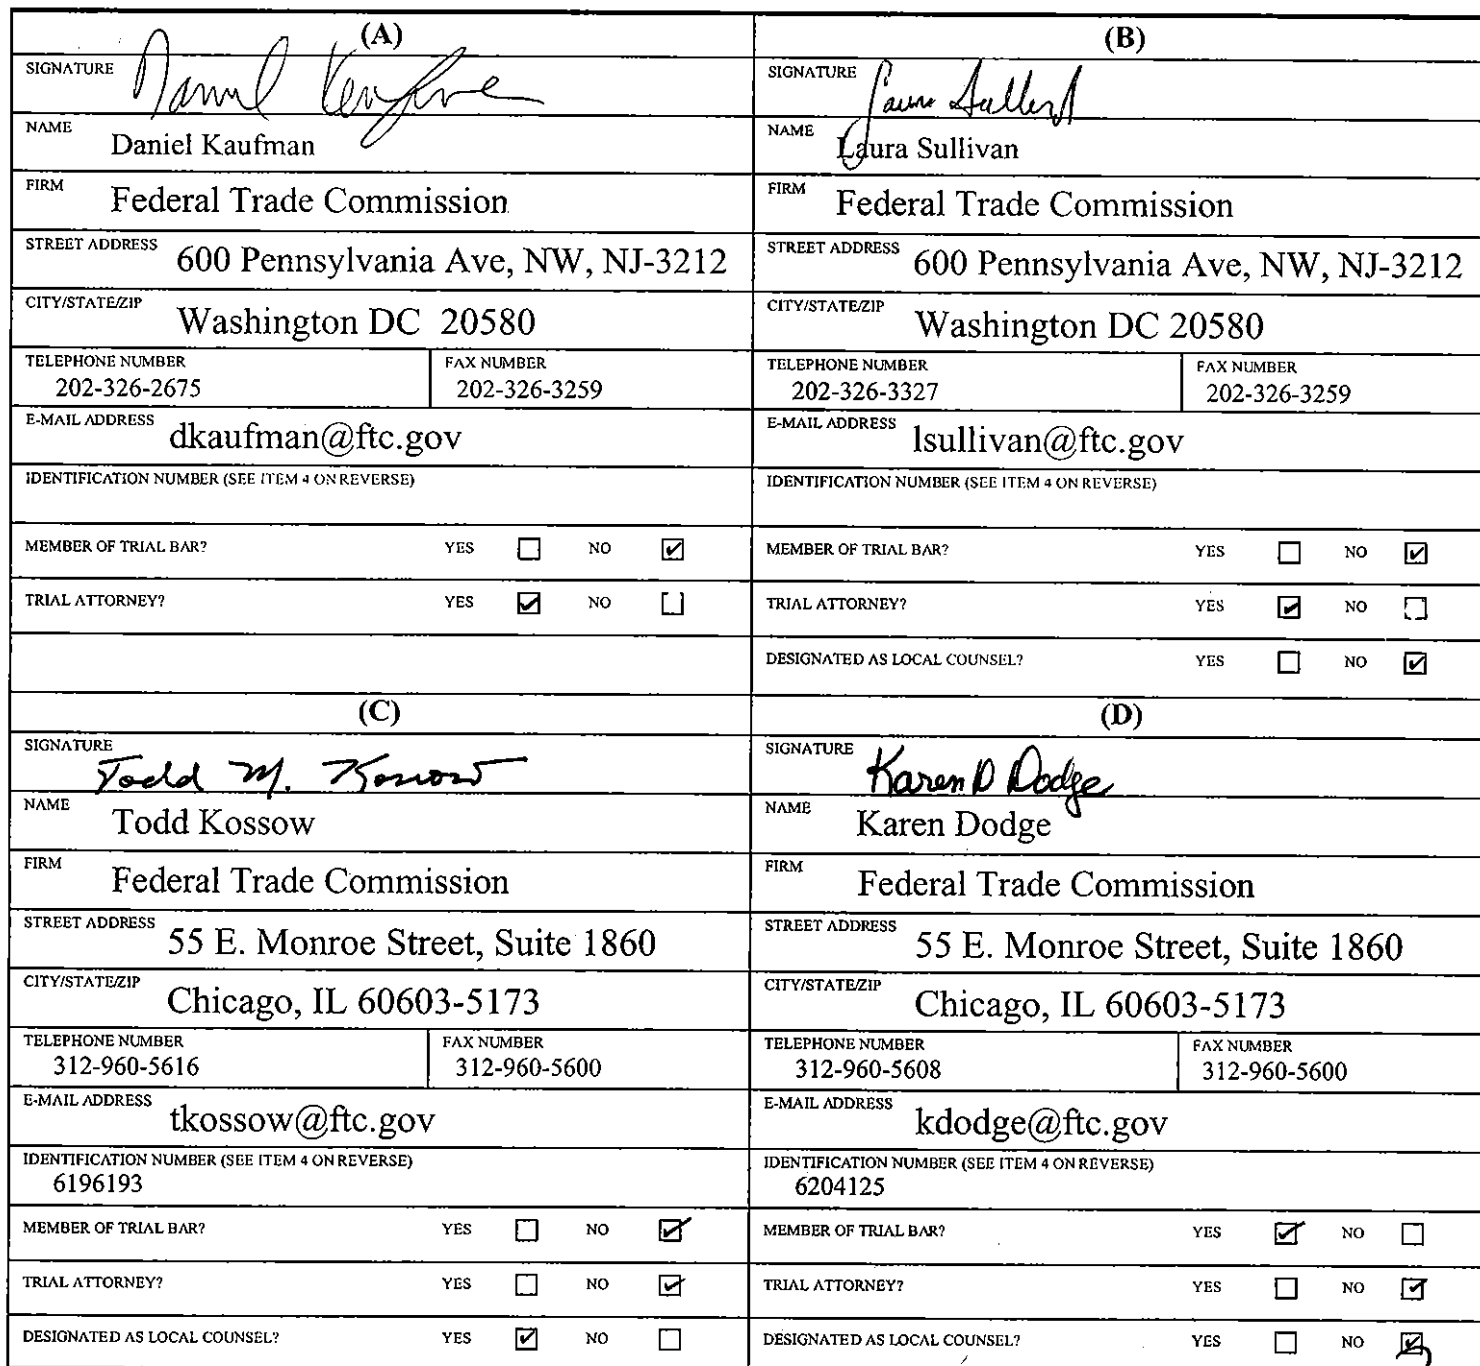 (A)
SIGNATURE Daniel Kaufman
NAME Daniel Kaufman
FIRM Federal Trade Commission
STREET ADDRESS 600 Pennsylvania Ave, NW, NJ-3212
CITY/STATE/ZIP Washington DC 20580
TELEPHONE NUMBER FAX NUMBER
202-326-2675 202-326-3259
E-MAIL ADDRESS dkaufman@ftc.gov
IDENTIFICATION NUMBER (SEE ITEM 4 ON REVERSE)
MEMBER OF TRIAL BAR? YES ☐ NO ☑
TRIAL ATTORNEY? YES ☑ NO ☐
(B)
SIGNATURE Laura Sullivan
NAME Laura Sullivan
FIRM Federal Trade Commission
STREET ADDRESS 600 Pennsylvania Ave, NW, NJ-3212
CITY/STATE/ZIP Washington DC 20580
TELEPHONE NUMBER FAX NUMBER
202-326-3327 202-326-3259
E-MAIL ADDRESS lsullivan@ftc.gov
IDENTIFICATION NUMBER (SEE ITEM 4 ON REVERSE)
MEMBER OF TRIAL BAR? YES ☐ NO ☑
TRIAL ATTORNEY? YES ☑ NO ☐
DESIGNATED AS LOCAL COUNSEL? YES ☐ NO ☑
(C)
SIGNATURE Todd M. Kossow
NAME Todd Kossow
FIRM Federal Trade Commission
STREET ADDRESS 55 E. Monroe Street, Suite 1860
CITY/STATE/ZIP Chicago, IL 60603-5173
TELEPHONE NUMBER FAX NUMBER
312-960-5616 312-960-5600
E-MAIL ADDRESS tkossow@ftc.gov
IDENTIFICATION NUMBER (SEE ITEM 4 ON REVERSE)
6196193
MEMBER OF TRIAL BAR? YES ☐ NO ☑
TRIAL ATTORNEY? YES ☐ NO ☑
DESIGNATED AS LOCAL COUNSEL? YES ☑ NO ☐
(D)
SIGNATURE Karen D Dodge
NAME Karen Dodge
FIRM Federal Trade Commission
STREET ADDRESS 55 E. Monroe Street, Suite 1860
CITY/STATE/ZIP Chicago, IL 60603-5173
TELEPHONE NUMBER FAX NUMBER
312-960-5608 312-960-5600
E-MAIL ADDRESS kdodge@ftc.gov
IDENTIFICATION NUMBER (SEE ITEM 4 ON REVERSE)
6204125
MEMBER OF TRIAL BAR? YES ☑ NO ☐
TRIAL ATTORNEY? YES ☐ NO ☑
DESIGNATED AS LOCAL COUNSEL? YES ☐ NO ☑